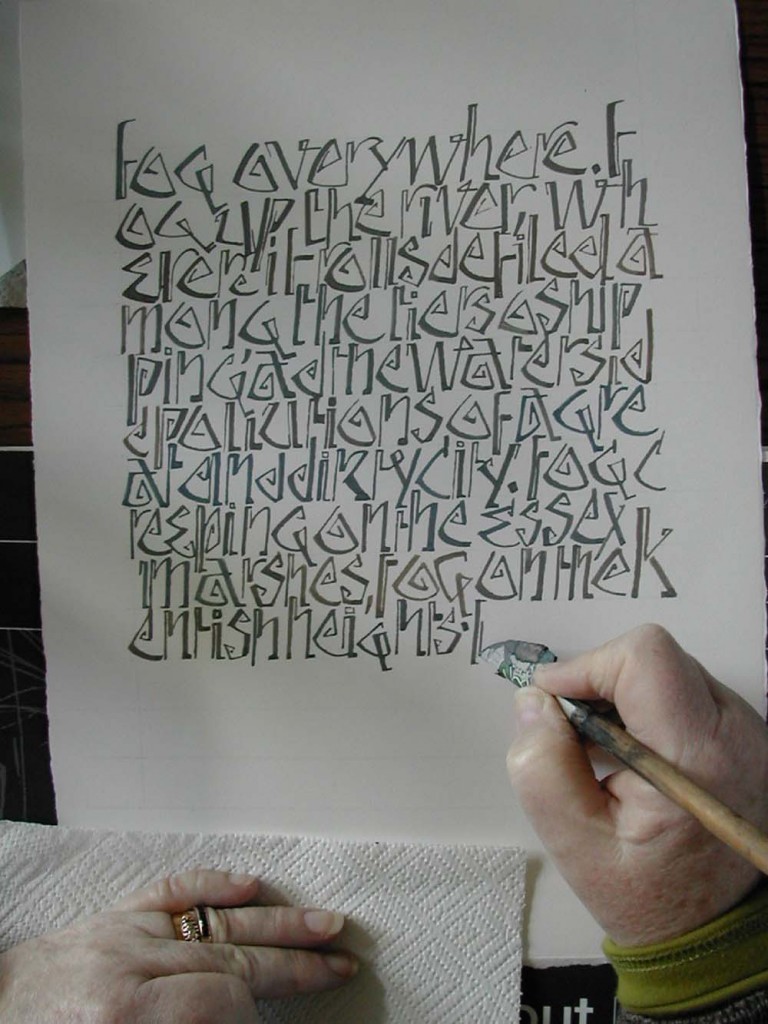 fog everywhere. f
og up the river, wh
ere it rolls defiled a
mong the tiers o ship
ping, ad the watersid
e pollutions of a gre
at and dirty city. fog c
reeping on the Essex
marshes, fog on the k
entish heights. f
out